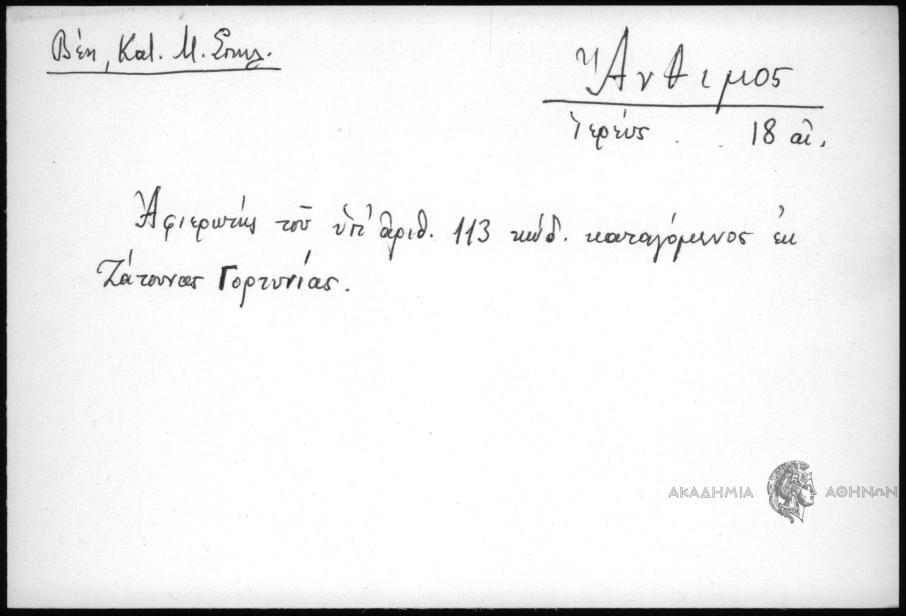 Βέη, Κατ. Μ. Σπηλ.
Ἄνθιμος
Ἱερεύς . . 18 αἰ.
Ἀφιερωτὴς τοῦ ὑπ' ἀριθ. 113 κώδ. καταγόμενος ἐκ
Ζάτουνας Γορτυνίας.
ΑΚΑΔΗΜΙΑ ΑΘΗΝΩΝ